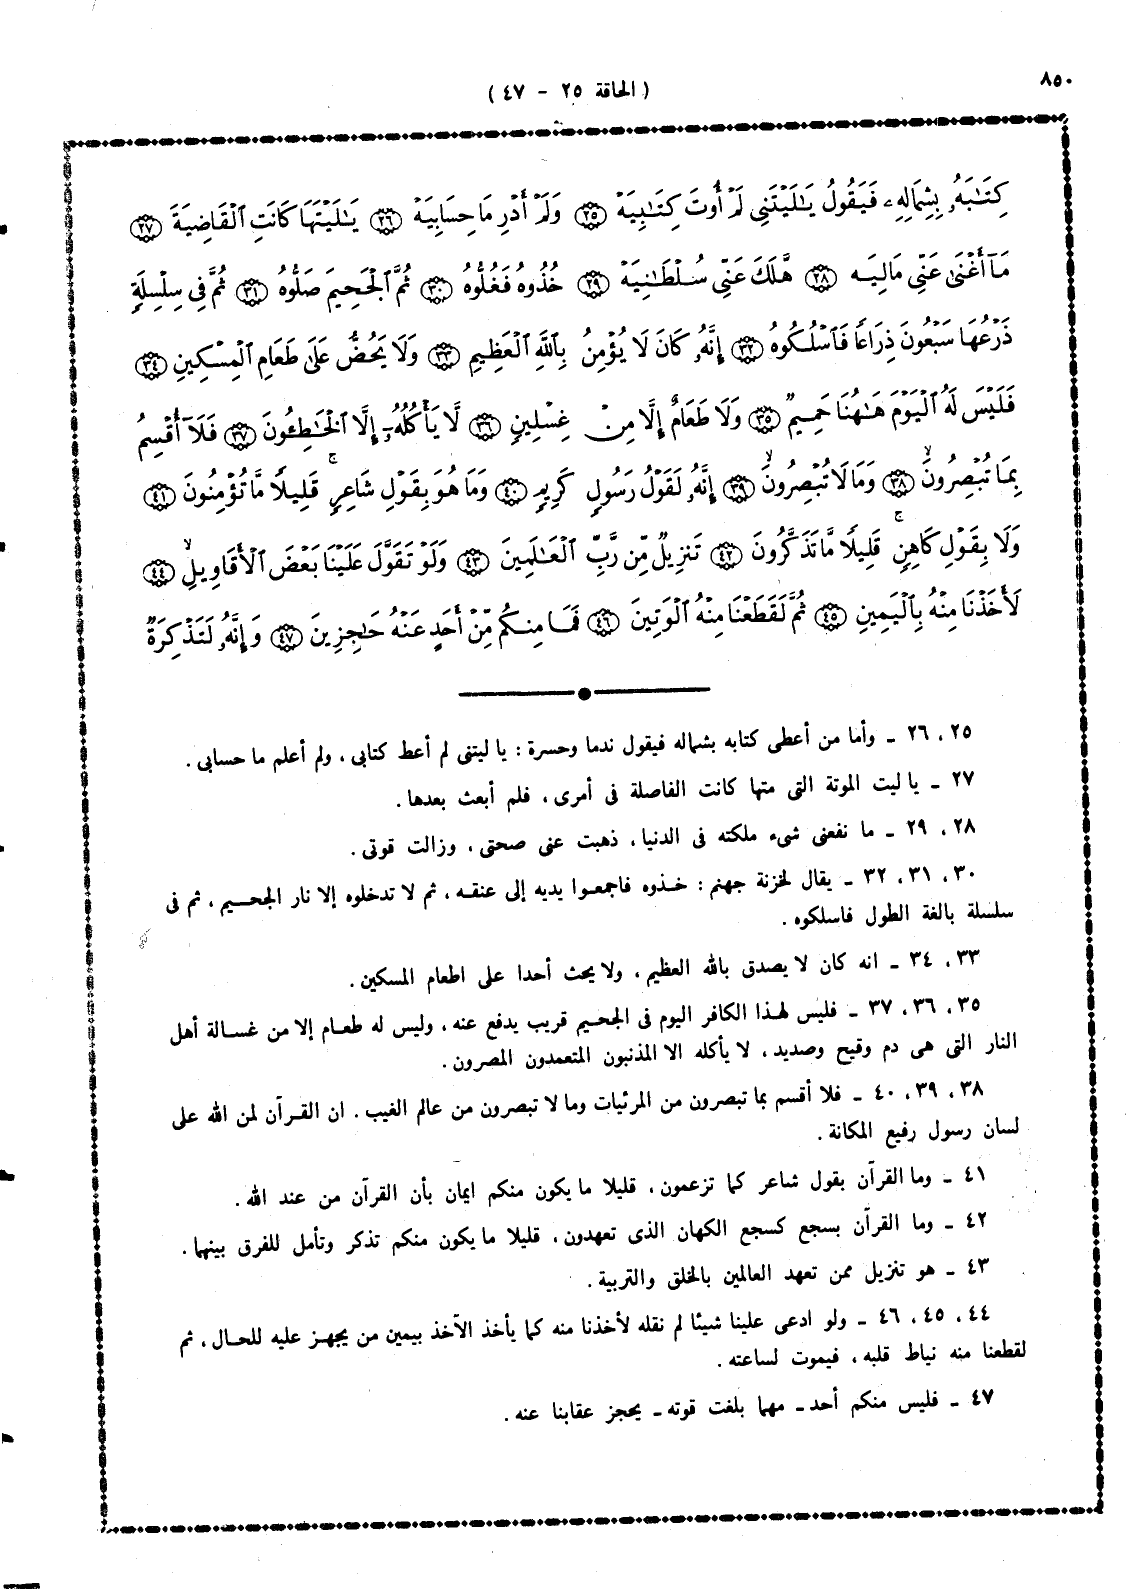 ٨٥٠
( الحاقة ٢٥ – ٤٧ )
كِتَٰبَهُۥ بِشِمَالِهِۦ فَيَقُولُ يَٰلَيْتَنِى لَمْ أُوتَ كِتَٰبِيَهْ ۝٢٥ وَلَمْ أَدْرِ مَا حِسَابِيَهْ ۝٢٦ يَٰلَيْتَهَا كَانَتِ ٱلْقَاضِيَةَ ۝٢٧
مَآ أَغْنَىٰ عَنِّى مَالِيَهْ ۝٢٨ هَّلَكَ عَنِّى سُلْطَٰنِيَهْ ۝٢٩ خُذُوهُ فَغُلُّوهُ ۝٣٠ ثُمَّ ٱلْجَحِيمَ صَلُّوهُ ۝٣١ ثُمَّ فِى سِلْسِلَةٍ
ذَرْعُهَا سَبْعُونَ ذِرَاعًا فَٱسْلُكُوهُ ۝٣٢ إِنَّهُۥ كَانَ لَا يُؤْمِنُ بِٱللَّهِ ٱلْعَظِيمِ ۝٣٣ وَلَا يَحُضُّ عَلَىٰ طَعَامِ ٱلْمِسْكِينِ ۝٣٤
فَلَيْسَ لَهُ ٱلْيَوْمَ هَٰهُنَا حَمِيمٌ ۝٣٥ وَلَا طَعَامٌ إِلَّا مِنْ غِسْلِينٍ ۝٣٦ لَّا يَأْكُلُهُۥٓ إِلَّا ٱلْخَٰطِـُٔونَ ۝٣٧ فَلَآ أُقْسِمُ
بِمَا تُبْصِرُونَ ۙ ۝٣٨ وَمَا لَا تُبْصِرُونَ ۙ ۝٣٩ إِنَّهُۥ لَقَوْلُ رَسُولٍ كَرِيمٍ ۝٤٠ وَمَا هُوَ بِقَوْلِ شَاعِرٍ ۚ قَلِيلًا مَّا تُؤْمِنُونَ ۝٤١
وَلَا بِقَوْلِ كَاهِنٍ ۚ قَلِيلًا مَّا تَذَكَّرُونَ ۝٤٢ تَنزِيلٌ مِّن رَّبِّ ٱلْعَٰلَمِينَ ۝٤٣ وَلَوْ تَقَوَّلَ عَلَيْنَا بَعْضَ ٱلْأَقَاوِيلِ ۙ ۝٤٤
لَأَخَذْنَا مِنْهُ بِٱلْيَمِينِ ۝٤٥ ثُمَّ لَقَطَعْنَا مِنْهُ ٱلْوَتِينَ ۝٤٦ فَمَا مِنكُم مِّنْ أَحَدٍ عَنْهُ حَٰجِزِينَ ۝٤٧ وَإِنَّهُۥ لَتَذْكِرَةٌ
٢٥ ، ٢٦ ــ وأما من أعطى كتابه بشماله فيقول ندما وحسرة : يا ليتنى لم أعط كتابى ، ولم أعلم ما حسابى .
٢٧ ــ يا ليت الموتة التى متها كانت الفاصلة فى أمرى ، فلم أبعث بعدها .
٢٨ ، ٢٩ ــ ما نفعنى شىء ملكته فى الدنيا ، ذهبت عنى صحتى ، وزالت قوتى .
٣٠ ، ٣١ ، ٣٢ ــ يقال لخزنة جهنم : خذوه فاجمعوا يديه إلى عنقه ، ثم لا تدخلوه إلا نار الجحيم ، ثم فى
سلسلة بالغة الطول فاسلكوه .
٣٣ ، ٣٤ ــ انه كان لا يصدق بالله العظيم ، ولا يحث أحدا على اطعام المسكين .
٣٥ ، ٣٦ ، ٣٧ ــ فليس لهذا الكافر اليوم فى الجحيم قريب يدفع عنه ، وليس له طعام إلا من غسالة أهل
النار التى هى دم وقيح وصديد ، لا يأكله الا المذنبون المتعمدون المصرون .
٣٨ ، ٣٩ ، ٤٠ ــ فلا أقسم بما تبصرون من المرئيات وما لا تبصرون من عالم الغيب . ان القرآن لمن الله على
لسان رسول رفيع المكانة .
٤١ ــ وما القرآن بقول شاعر كما تزعمون ، قليلا ما يكون منكم ايمان بأن القرآن من عند الله .
٤٢ ــ وما القرآن بسجع كسجع الكهان الذى تعهدون ، قليلا ما يكون منكم تذكر وتأمل للفرق بينهما .
٤٣ ــ هو تنزيل ممن تعهد العالمين بالخلق والتربية .
٤٤ ، ٤٥ ، ٤٦ ــ ولو ادعى علينا شيئا لم نقله لأخذنا منه كما يأخذ الآخذ بيمين من يجهز عليه للحال ، ثم
لقطعنا منه نياط قلبه ، فيموت لساعته .
٤٧ ــ فليس منكم أحد ــ مهما بلغت قوته ــ يحجز عقابنا عنه .